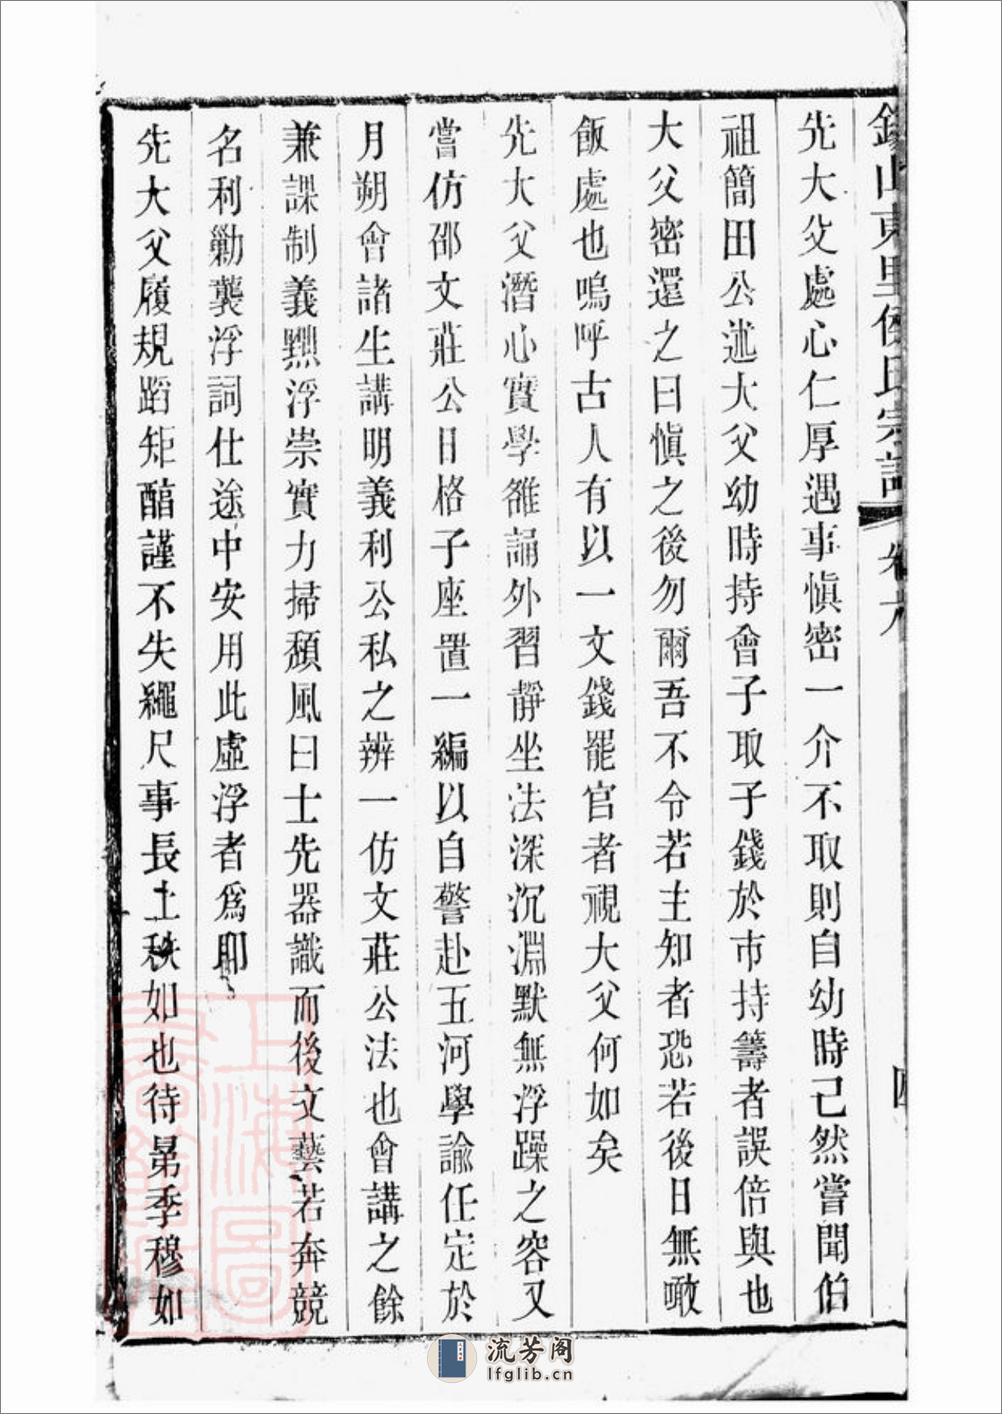 錫山東里侯氏宗譜 卷六
先大父處心仁厚遇事慎密一介不取則自幼時己然嘗聞伯
祖簡田公述大父幼時持會子取子錢於市持籌者誤倍與也
大父密還之曰慎之後勿爾吾不令若主知者恐若後日無噉
飯處也嗚呼古人有以一文錢罷官者視大父何如矣
先大父潛心實學雒誦外習靜坐法深沉淵默無浮躁之容又
嘗仿邵文莊公日格子座置一編以自警赴五河學諭任定於
月朔會諸生講明義利公私之辨一仿文莊公法也會講之餘
兼課制義黜浮崇實力掃頹風曰士先器識而後文藝若奔競
名利勦襲浮詞仕途中安用此虛浮者為耶
先大父履規蹈矩醕謹不失繩尺事長上秩如也待昴季穆如
上海圖書館藏
流芳阁
lfglib.cn